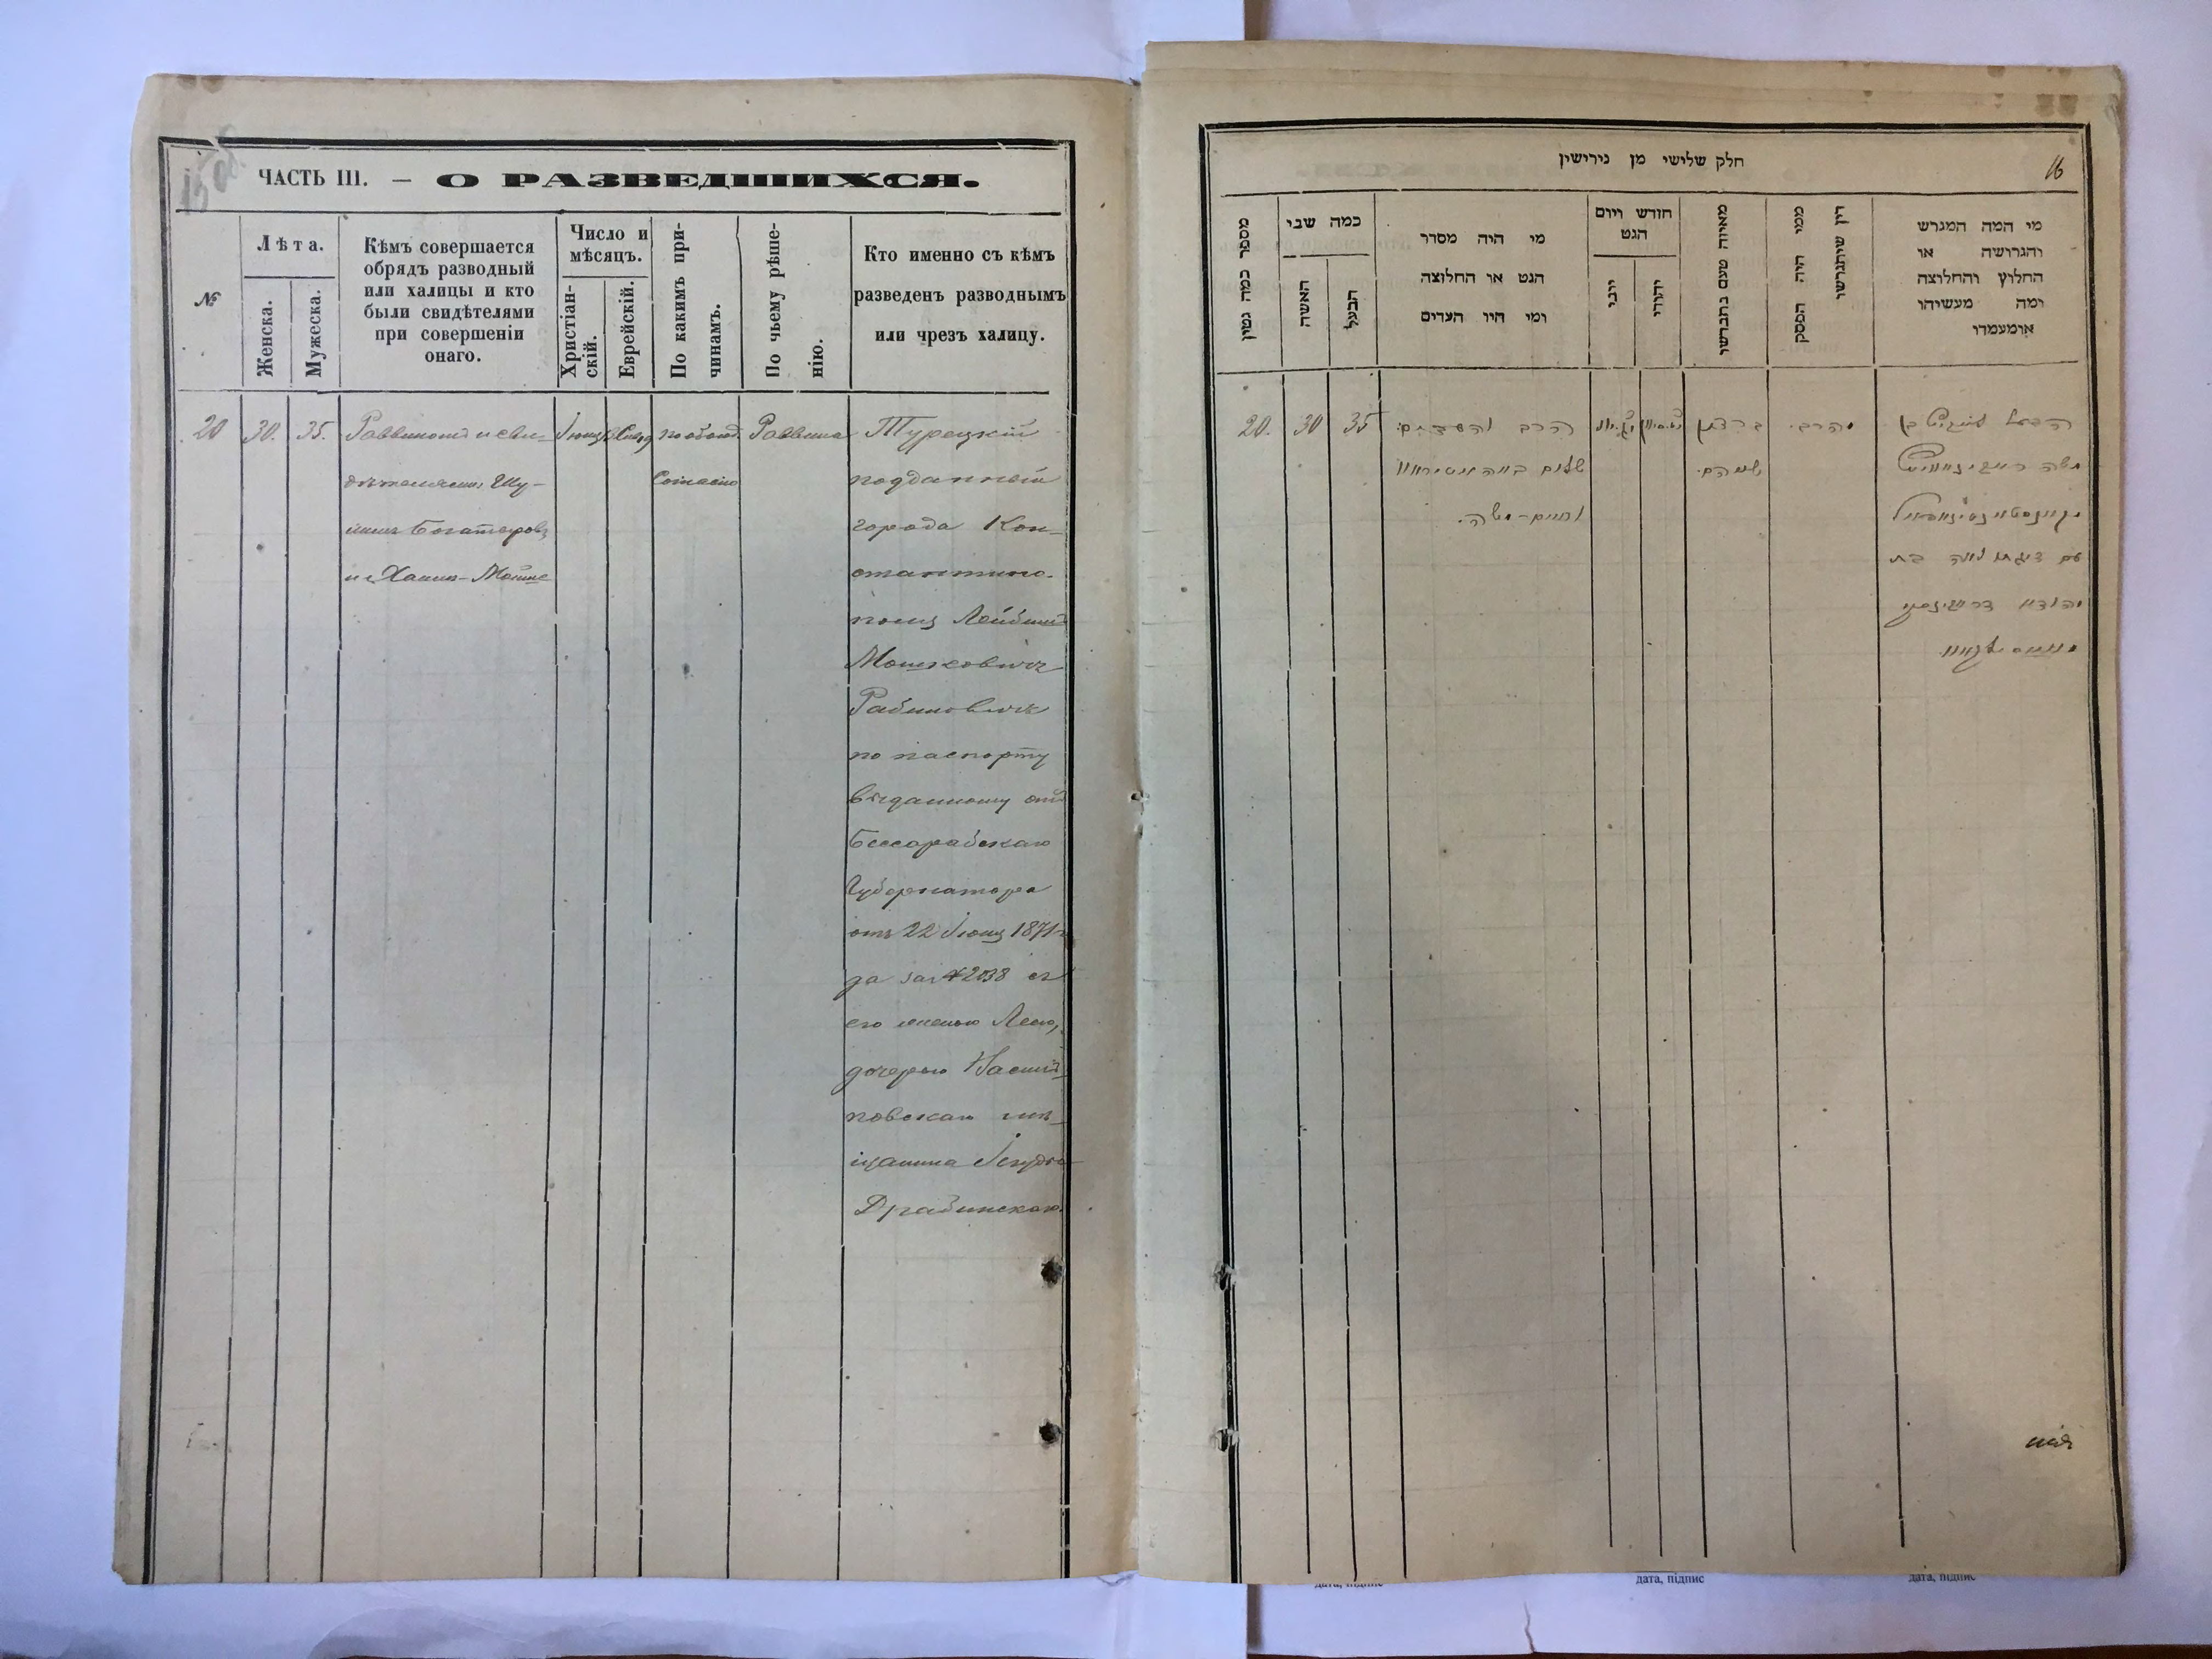 ЧАСТЬ III. — О РАЗВЕДШИХСЯ.
№
Лѣта.
Женска.
Мужеска.
Кѣмъ совершается
обрядъ разводный
или халицы и кто
были свидѣтелями
при совершеніи
онаго.
Число и
мѣсяцъ.
Христіан-
скій.
Еврейскій.
По какимъ при-
чинамъ.
По чьему рѣше-
нію.
Кто именно съ кѣмъ
разведенъ разводнымъ
или чрезъ халицу.
20
30.
35.
Раввиномъ и сви-
дѣтелями Шу-
лимъ Богатыровъ
и Хаимъ-Мойше
Іюня
по обоюд.
Согласію
Раввина
Турецкій
подданный
города Кон-
стантино-
поля Лейбишъ
Мошковичъ
Рабиновичъ
по паспорту
выданному отъ
Бессарабскаго
Губернатора
отъ 22 Іюня 1871 г.
за № 2038 съ
его женою Леею,
дочерью
повскаго мѣ-
щанина
Драбинскаго.
חלק שלישי מן גירישין
16
מספר כמה גטין
כמה שני
האשה
הבעל
מי היה מסדר
הגט או החלוצה
ומי היו העדים
חודש ויום
הגט
יוני
יהודי
מאיזה טעם נתגרשו
ממי היה הפסק
דין שיתגרשו
מי המה המגרש
והגרושה או
החלוץ והחלוצה
ומה מעשיהו
ומעמדו
20.
30
35
הרב והעדים:
שלום
וחיים-משה.
ברצון
שניהם.
הרב.
הבעל
משה
עם
לאה בת
יהודא
дата, підпис
дата, підпис
дата, підпис